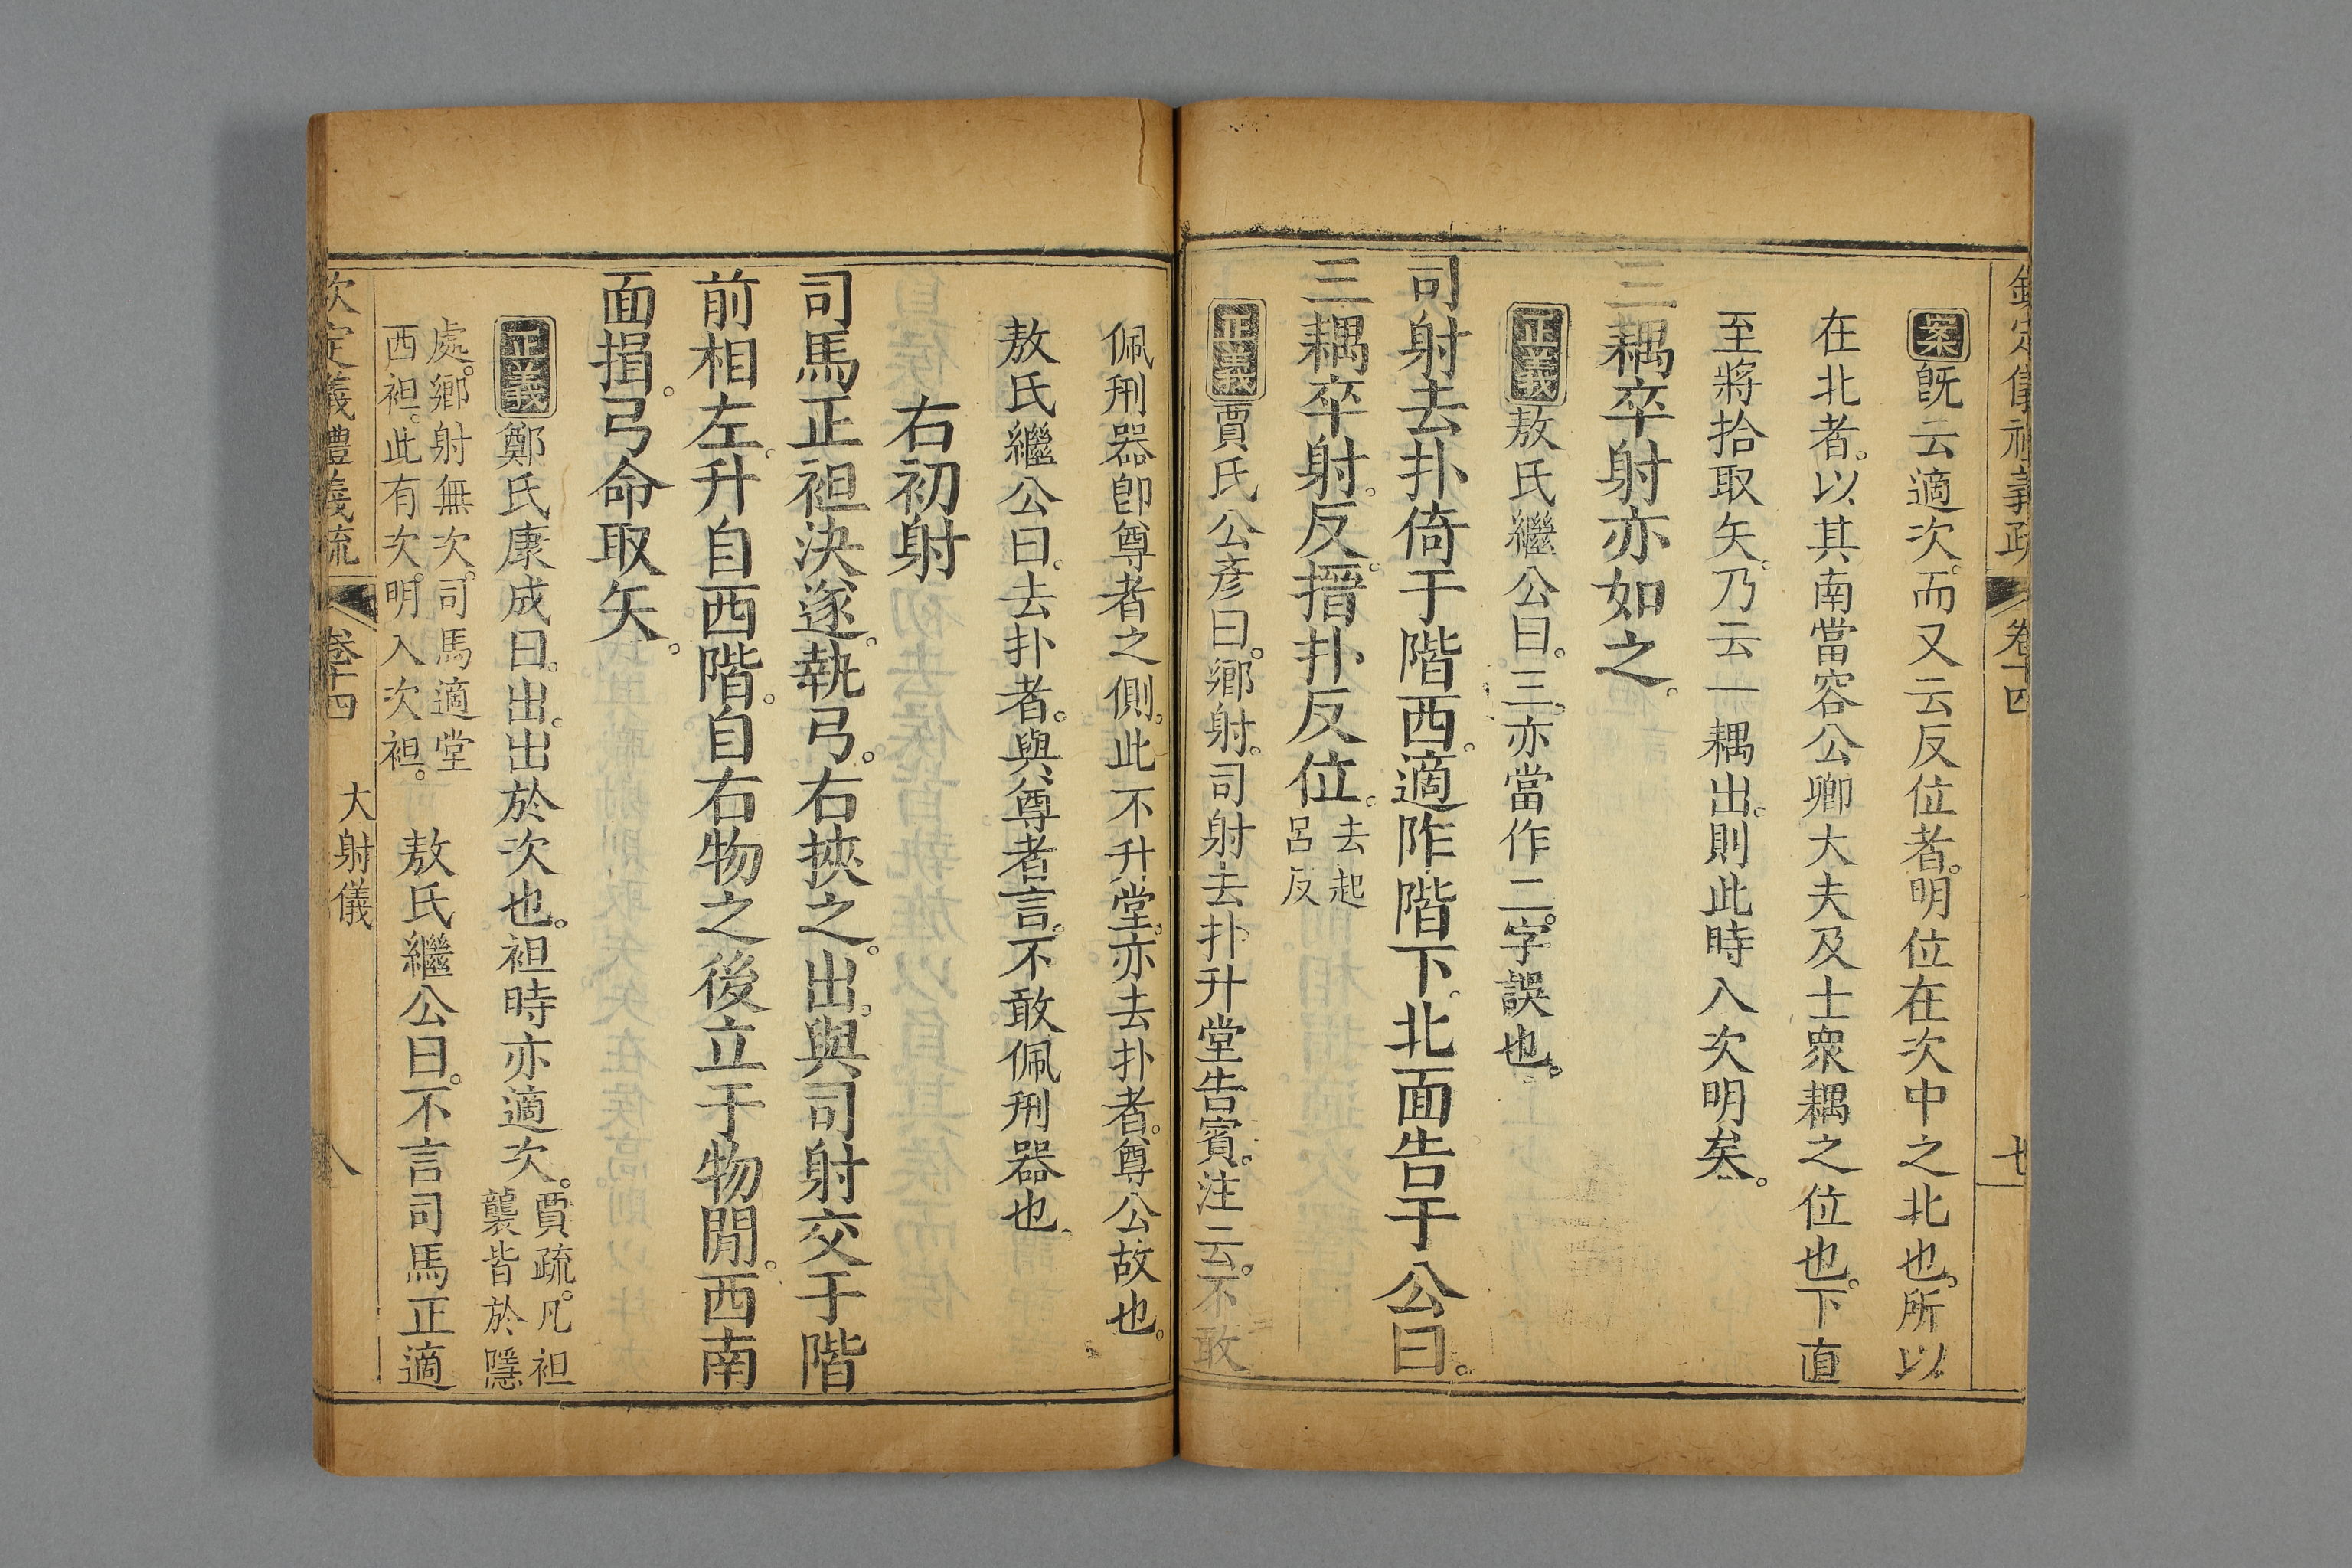 欽定儀禮義疏 卷十四 七
案既云適次。而又云反位者。明位在次中之北也。所以
在北者。以其南當容公卿大夫及士衆耦之位也。下直
至將拾取矢。乃云一耦出。則此時入次明矣。
三耦卒射亦如之。
正義敖氏繼公曰。三。亦當作二。字誤也。
司射去扑倚于階西。適阼階下。北面告于公曰。
三耦卒射。反。搢扑反位。去起呂反
正義賈氏公彥曰。鄉射。司射去扑升堂告賓。注云。不敢
佩刑器卽尊者之側。此不升堂。亦去扑者。尊公故也。
敖氏繼公曰。去扑者。與尊者言。不敢佩刑器也。
右初射
司馬正袒決遂。執弓。右挾之。出。與司射交于階
前相左。升自西階。自右物之後立于物閒。西南
面揖。弓命取矢。
正義鄭氏康成曰。出。出於次也。袒時亦適次。賈疏。凡袒襲皆於隱
處。鄉射無次。司馬適堂西袒。此有次。明入次袒。 敖氏繼公曰。不言司馬正適
欽定儀禮義疏 卷十四 大射儀 八